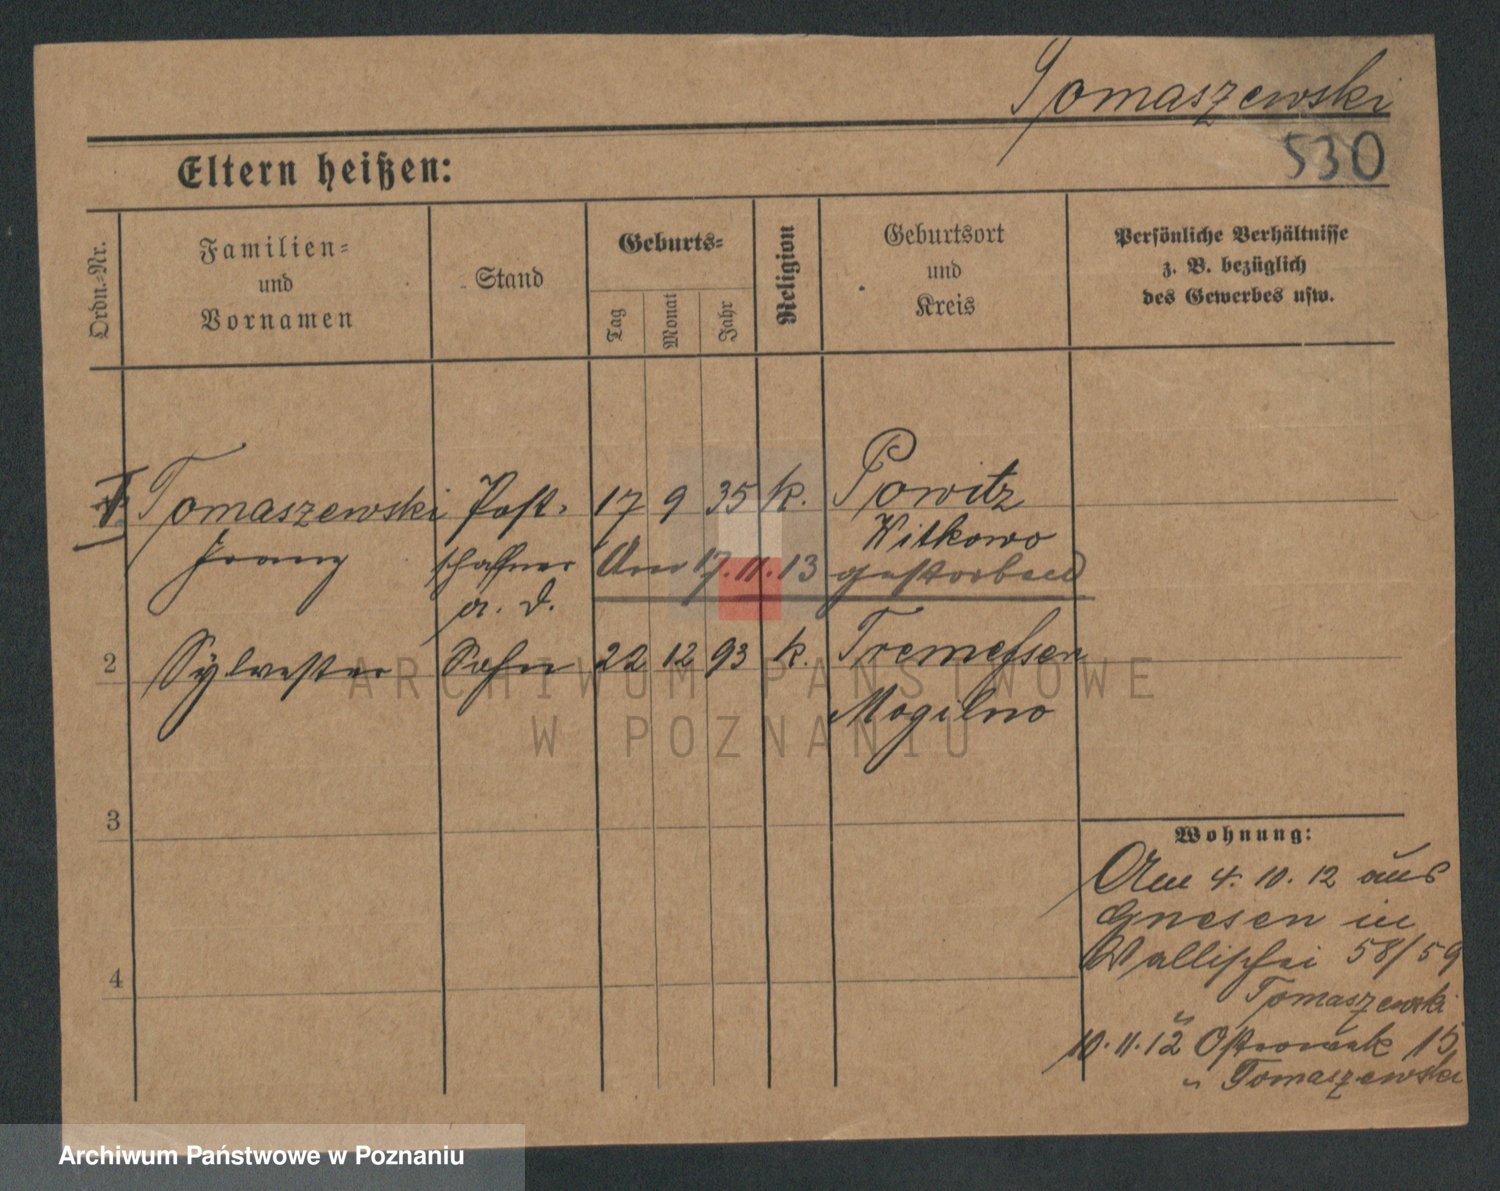 Tomaszewski
530
Eltern heißen:
Ordn.=Nr.
Familien=
und
Vornamen
Stand
Geburts=
Tag
Monat
Jahr
Religion
Geburtsort
und
Kreis
Persönliche Verhältnisse
z. B. bezüglich
des Gewerbes usw.
Tomaszewski Post- 17 9 35 k. Powitz
Franz schaffner Witkowo
a. D. Am 17.11.13 gestorben
2 Sylvester Sohn 22 12 93 k. Tremessen
Mogilno
3
4
Wohnung:
Am 4. 10. 12 aus
Gnesen in
Wallischei 58/59
Tomaszewski
10.11.12 Ostrowek 15
" Tomaszewski
ARCHIWUM PAŃSTWOWE
W POZNANIU
Archiwum Państwowe w Poznaniu